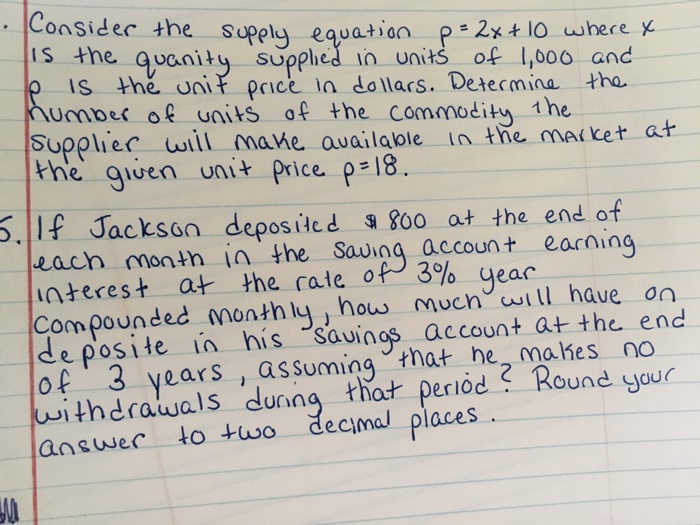 . Consider the supply equation p = 2x + 10 where x
is the quanity supplied in units of 1,000 and
p is the unit price in dollars. Determine the
number of units of the commodity the
supplier will make available in the market at
the given unit price p=18.
5. If Jackson deposited $ 800 at the end of
each month in the saving account earning
interest at the rate of 3% year
compounded monthly, how much will have on
deposite in his savings account at the end
of 3 years, assuming that he makes no
withdrawals during that period? Round your
answer to two decimal places.